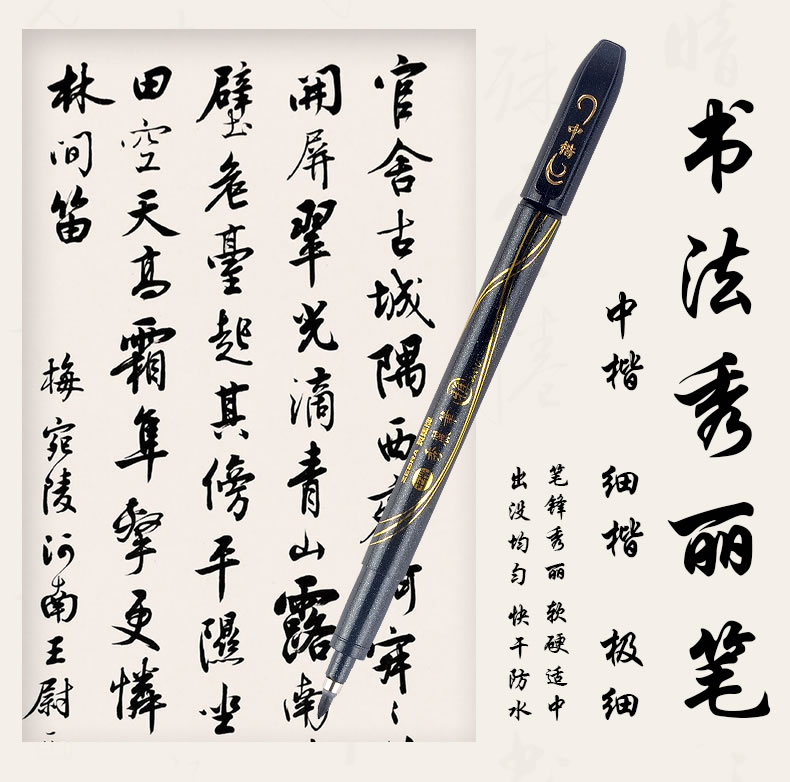 书法秀丽笔
中楷 细楷 极细
笔锋秀丽 软硬适中
出没均匀 快干防水
中楷
秀麗筆
官舍古城隅西
開屏翠光滴青山露南
壁危臺起其傍平隰坐
田空天高霜隼擊更憐
林间笛
梅宛陵河南王尉